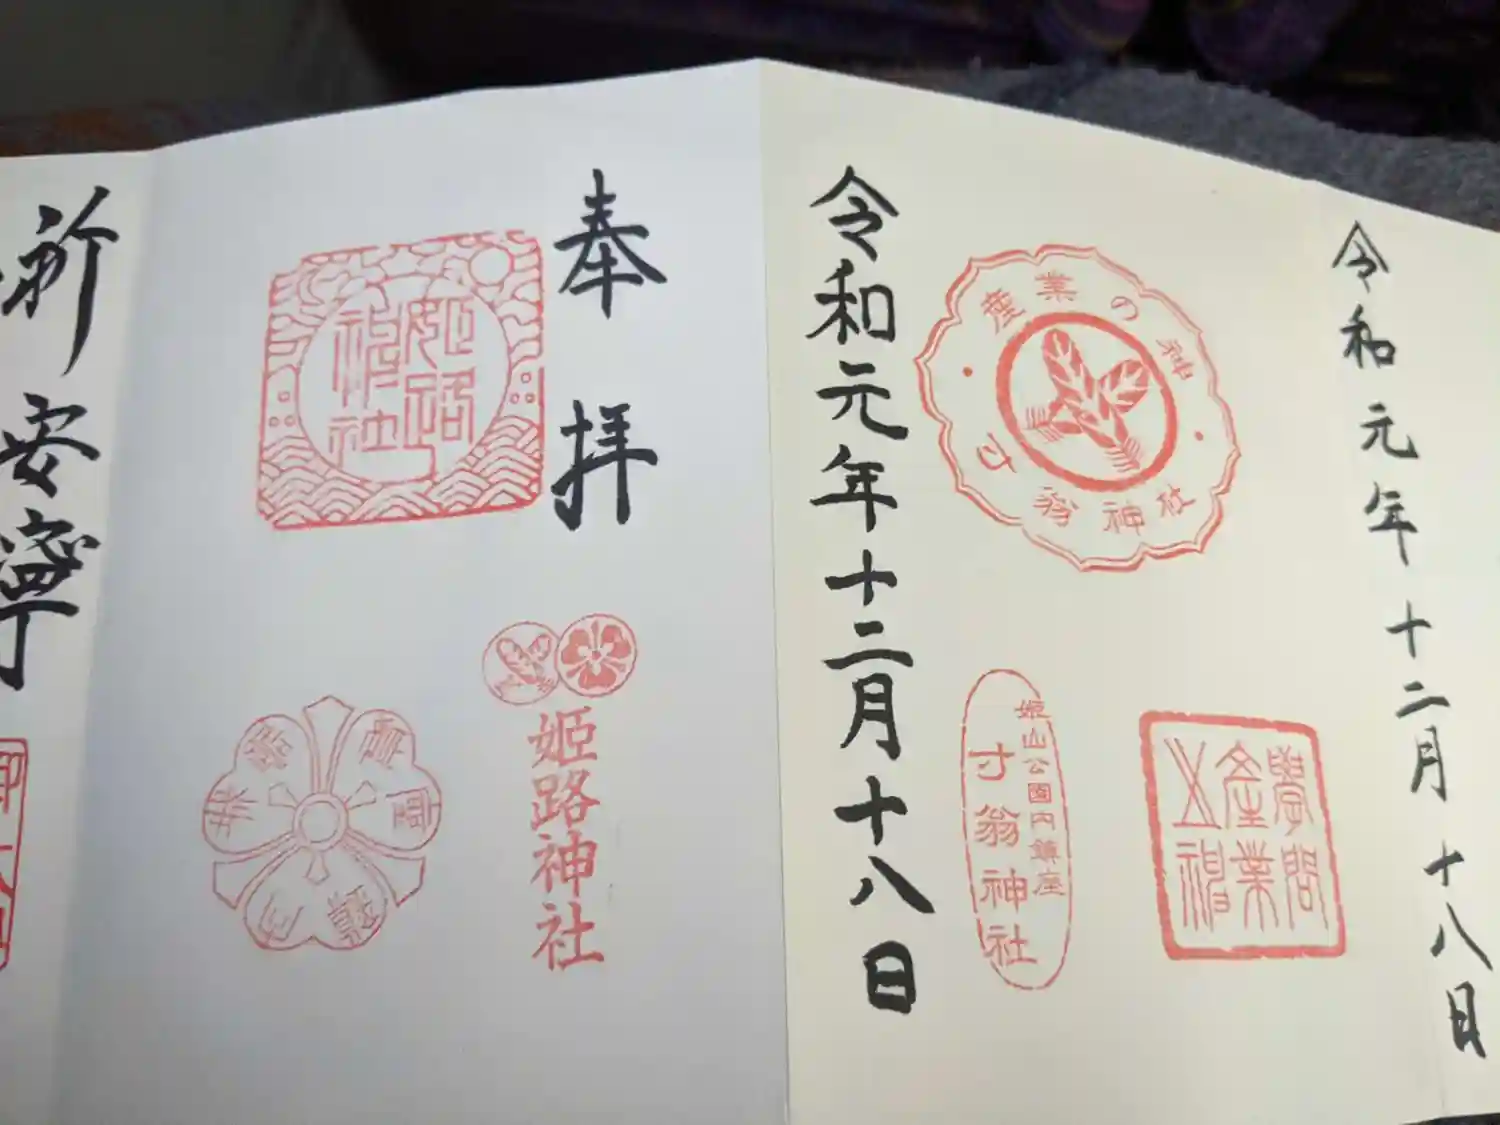 令和元年十二月十八日
産業の神
寸翁神社
姫山公園内鎮座
寸翁神社
學問
産業
之神
令和元年十二月十八日
奉拝
姫路
神社
姫路神社
祈
安寧